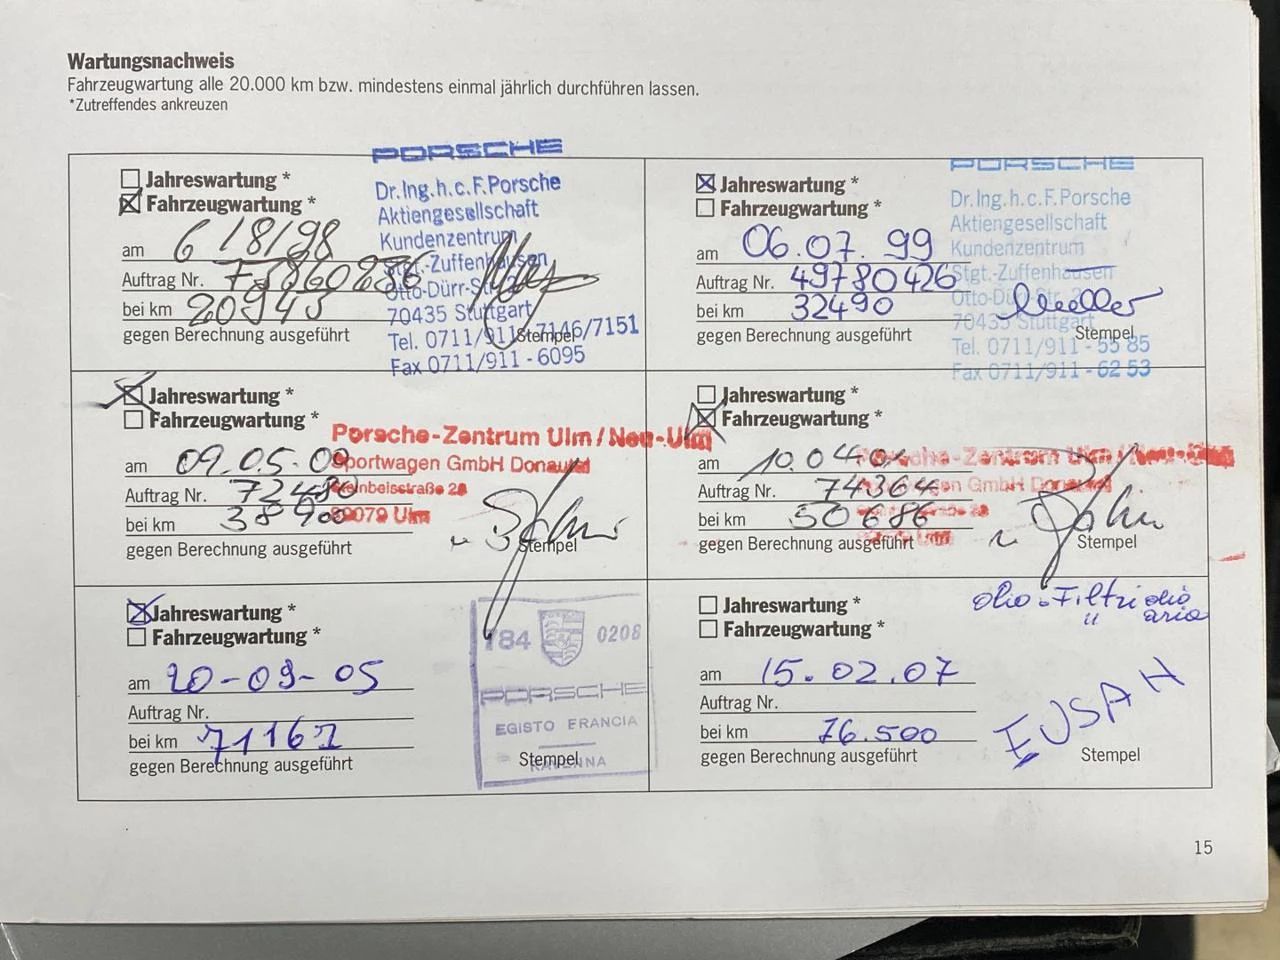 Wartungsnachweis
Fahrzeugwartung alle 20.000 km bzw. mindestens einmal jährlich durchführen lassen.
*Zutreffendes ankreuzen
PORSCHE
Dr.Ing.h.c.F.Porsche
Aktiengesellschaft
Kundenzentrum
Stgt.-Zuffenhausen
Otto-Dürr-Str.
70435 Stuttgart
Tel. 0711/911-7146/7151
Fax 0711/911-6095
Jahreswartung *
Fahrzeugwartung *
am 6/8/98
Auftrag Nr.
bei km 20945
gegen Berechnung ausgeführt
Stempel
PORSCHE
Dr.Ing.h.c.F.Porsche
Aktiengesellschaft
Kundenzentrum
Stgt.-Zuffenhausen
Otto-Dürr-Str.
70435 Stuttgart
Tel. 0711/911-55 85
Fax 0711/911-62 53
Jahreswartung *
Fahrzeugwartung *
am 06.07.99
Auftrag Nr. 49780426
bei km 32490
gegen Berechnung ausgeführt
Stempel
Jahreswartung *
Fahrzeugwartung *
Porsche-Zentrum Ulm/Neu-Ulm
Sportwagen GmbH Donautal
Steinbeisstraße
89079 Ulm
am 09.05.00
Auftrag Nr. 72480
bei km 38900
gegen Berechnung ausgeführt
Stempel
Jahreswartung *
Fahrzeugwartung *
Porsche-Zentrum Ulm/Neu-Ulm
Sportwagen GmbH Donautal
am 10.04.
Auftrag Nr. 74364
bei km 50686
gegen Berechnung ausgeführt
Stempel
Jahreswartung *
Fahrzeugwartung *
784 0208
PORSCHE
EGISTO FRANCIA
RAVENNA
am 20-09-05
Auftrag Nr.
bei km 71161
gegen Berechnung ausgeführt
Stempel
Jahreswartung *
Fahrzeugwartung *
olio - Filtri olio
" aria
am 15.02.07
Auftrag Nr.
bei km 76.500
gegen Berechnung ausgeführt
EUSAH
Stempel
15